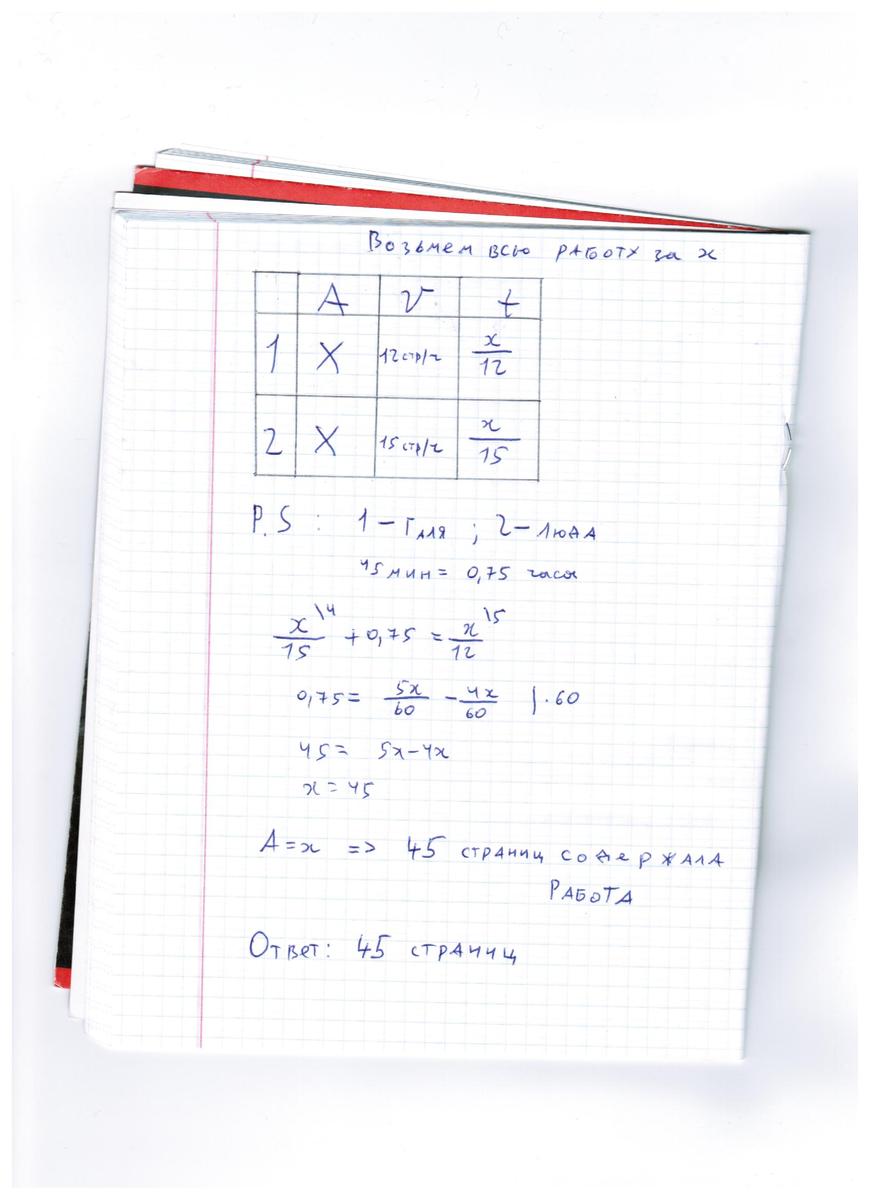 Возьмем всю работу за x
A V t
1 X 12стр/ч x/12
2 X 15стр/ч x/15
P.S : 1 – Галя ; 2 – Люда
45мин = 0,75 часа
x/15 \4 + 0,75 = x/12 \5
0,75 = 5x/60 – 4x/60 | · 60
45 = 5x–4x
x = 45
A = x => 45 страниц содержала
работа
Ответ: 45 страниц